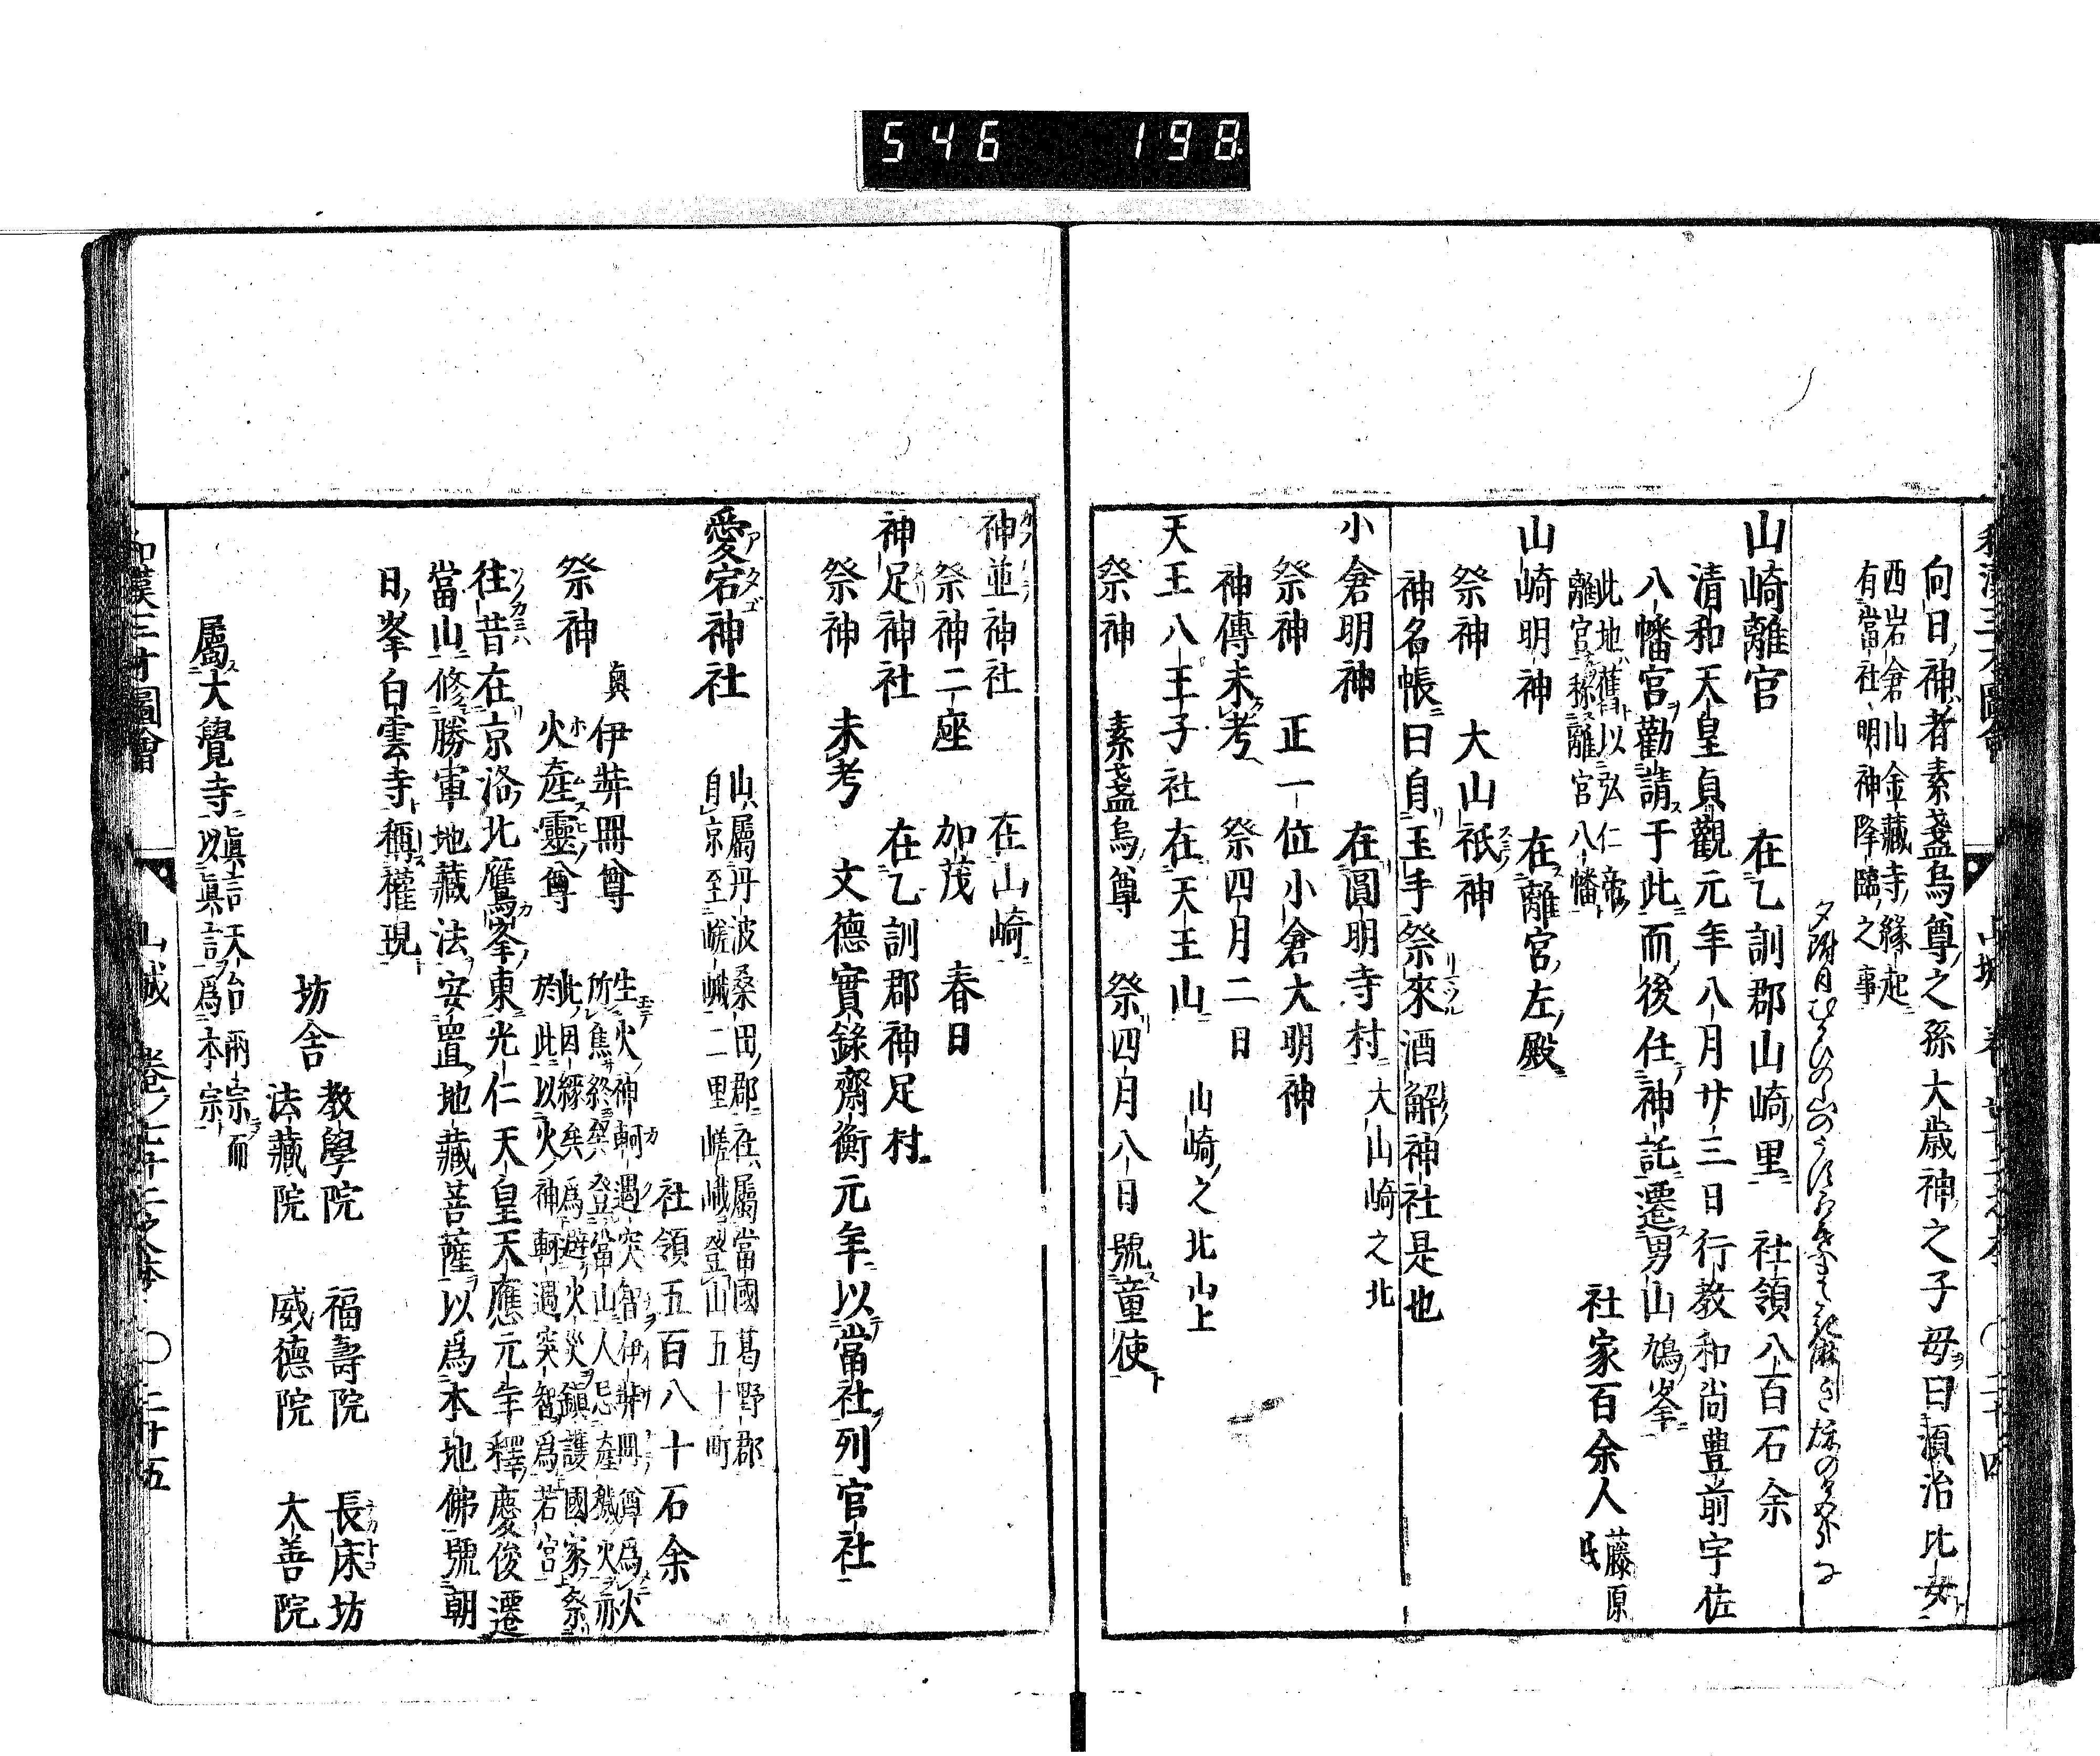 546 198
和漢三才圖會 山城 二十四
向日神者素盞烏尊之孫大歳神之子母曰須治比女
西岩倉山金藏寺縁起
有當社明神降臨之事
山崎離宮 在乙訓郡山崎里 社領八百石余
清和天皇貞觀元年八月廿三日行教和尚豊前宇佐
八幡宮勸請于此而後任神託遷男山鳩峯
此地舊以弘仁帝
離宮称離宮八幡
社家百余人 藤原氏
山崎明神 在離宮左殿
祭神 大山祇神
神名帳曰自玉手祭來酒解神社是也
小倉明神 在圓明寺村 大山崎之北
祭神 正一位小倉大明神
神傳未考 祭四月二日
天王八王子社在天王山 山崎之北山上
祭神 素盞烏尊 祭四月八日號童使
神並神社 在山崎
祭神二座 加茂 春日
神足神社 在乙訓郡神足村
祭神 未考 文德實錄齋衡元年以當社列官社
愛宕神社 アタゴ
山屬丹波桑田郡社屬當國葛野郡
自京至嵯峨二里嵯峨登山五十町
社領五百八十石余
祭神
奥 伊弉冊尊
火産靈尊
生火神軻遇突智伊弉冊尊爲火
所焦終矣登當山人忌産穢火亦
此因縁矣爲避火災鎮護國家祭
於此以火神軻遇突智爲若宮
往昔在京洛北鷹峯東光仁天皇天應元年釋慶俊遷
當山修勝軍地藏法安置地藏菩薩以爲本地佛號朝
日峯白雲寺稱權現
坊舍
教學院 福壽院 長床坊
法藏院 威德院 大善院
屬大覺寺 眞言天台兩宗而
以眞言爲本宗
和漢三才圖會 山城 卷ノ七十二之本 〇二十五